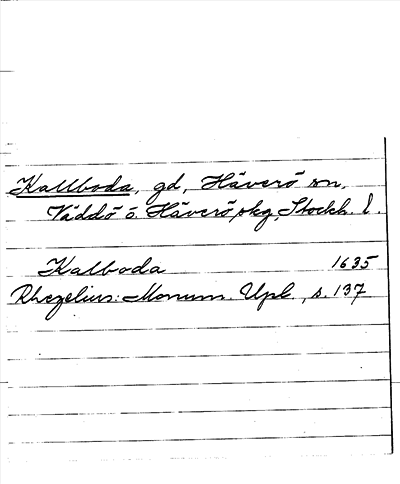 Kallboda, gd, Häverö sn,
Väddö o. Häverö skg, Stockh. l.
Kalboda 1635
Rhezelius: Monum. Upl., s. 137